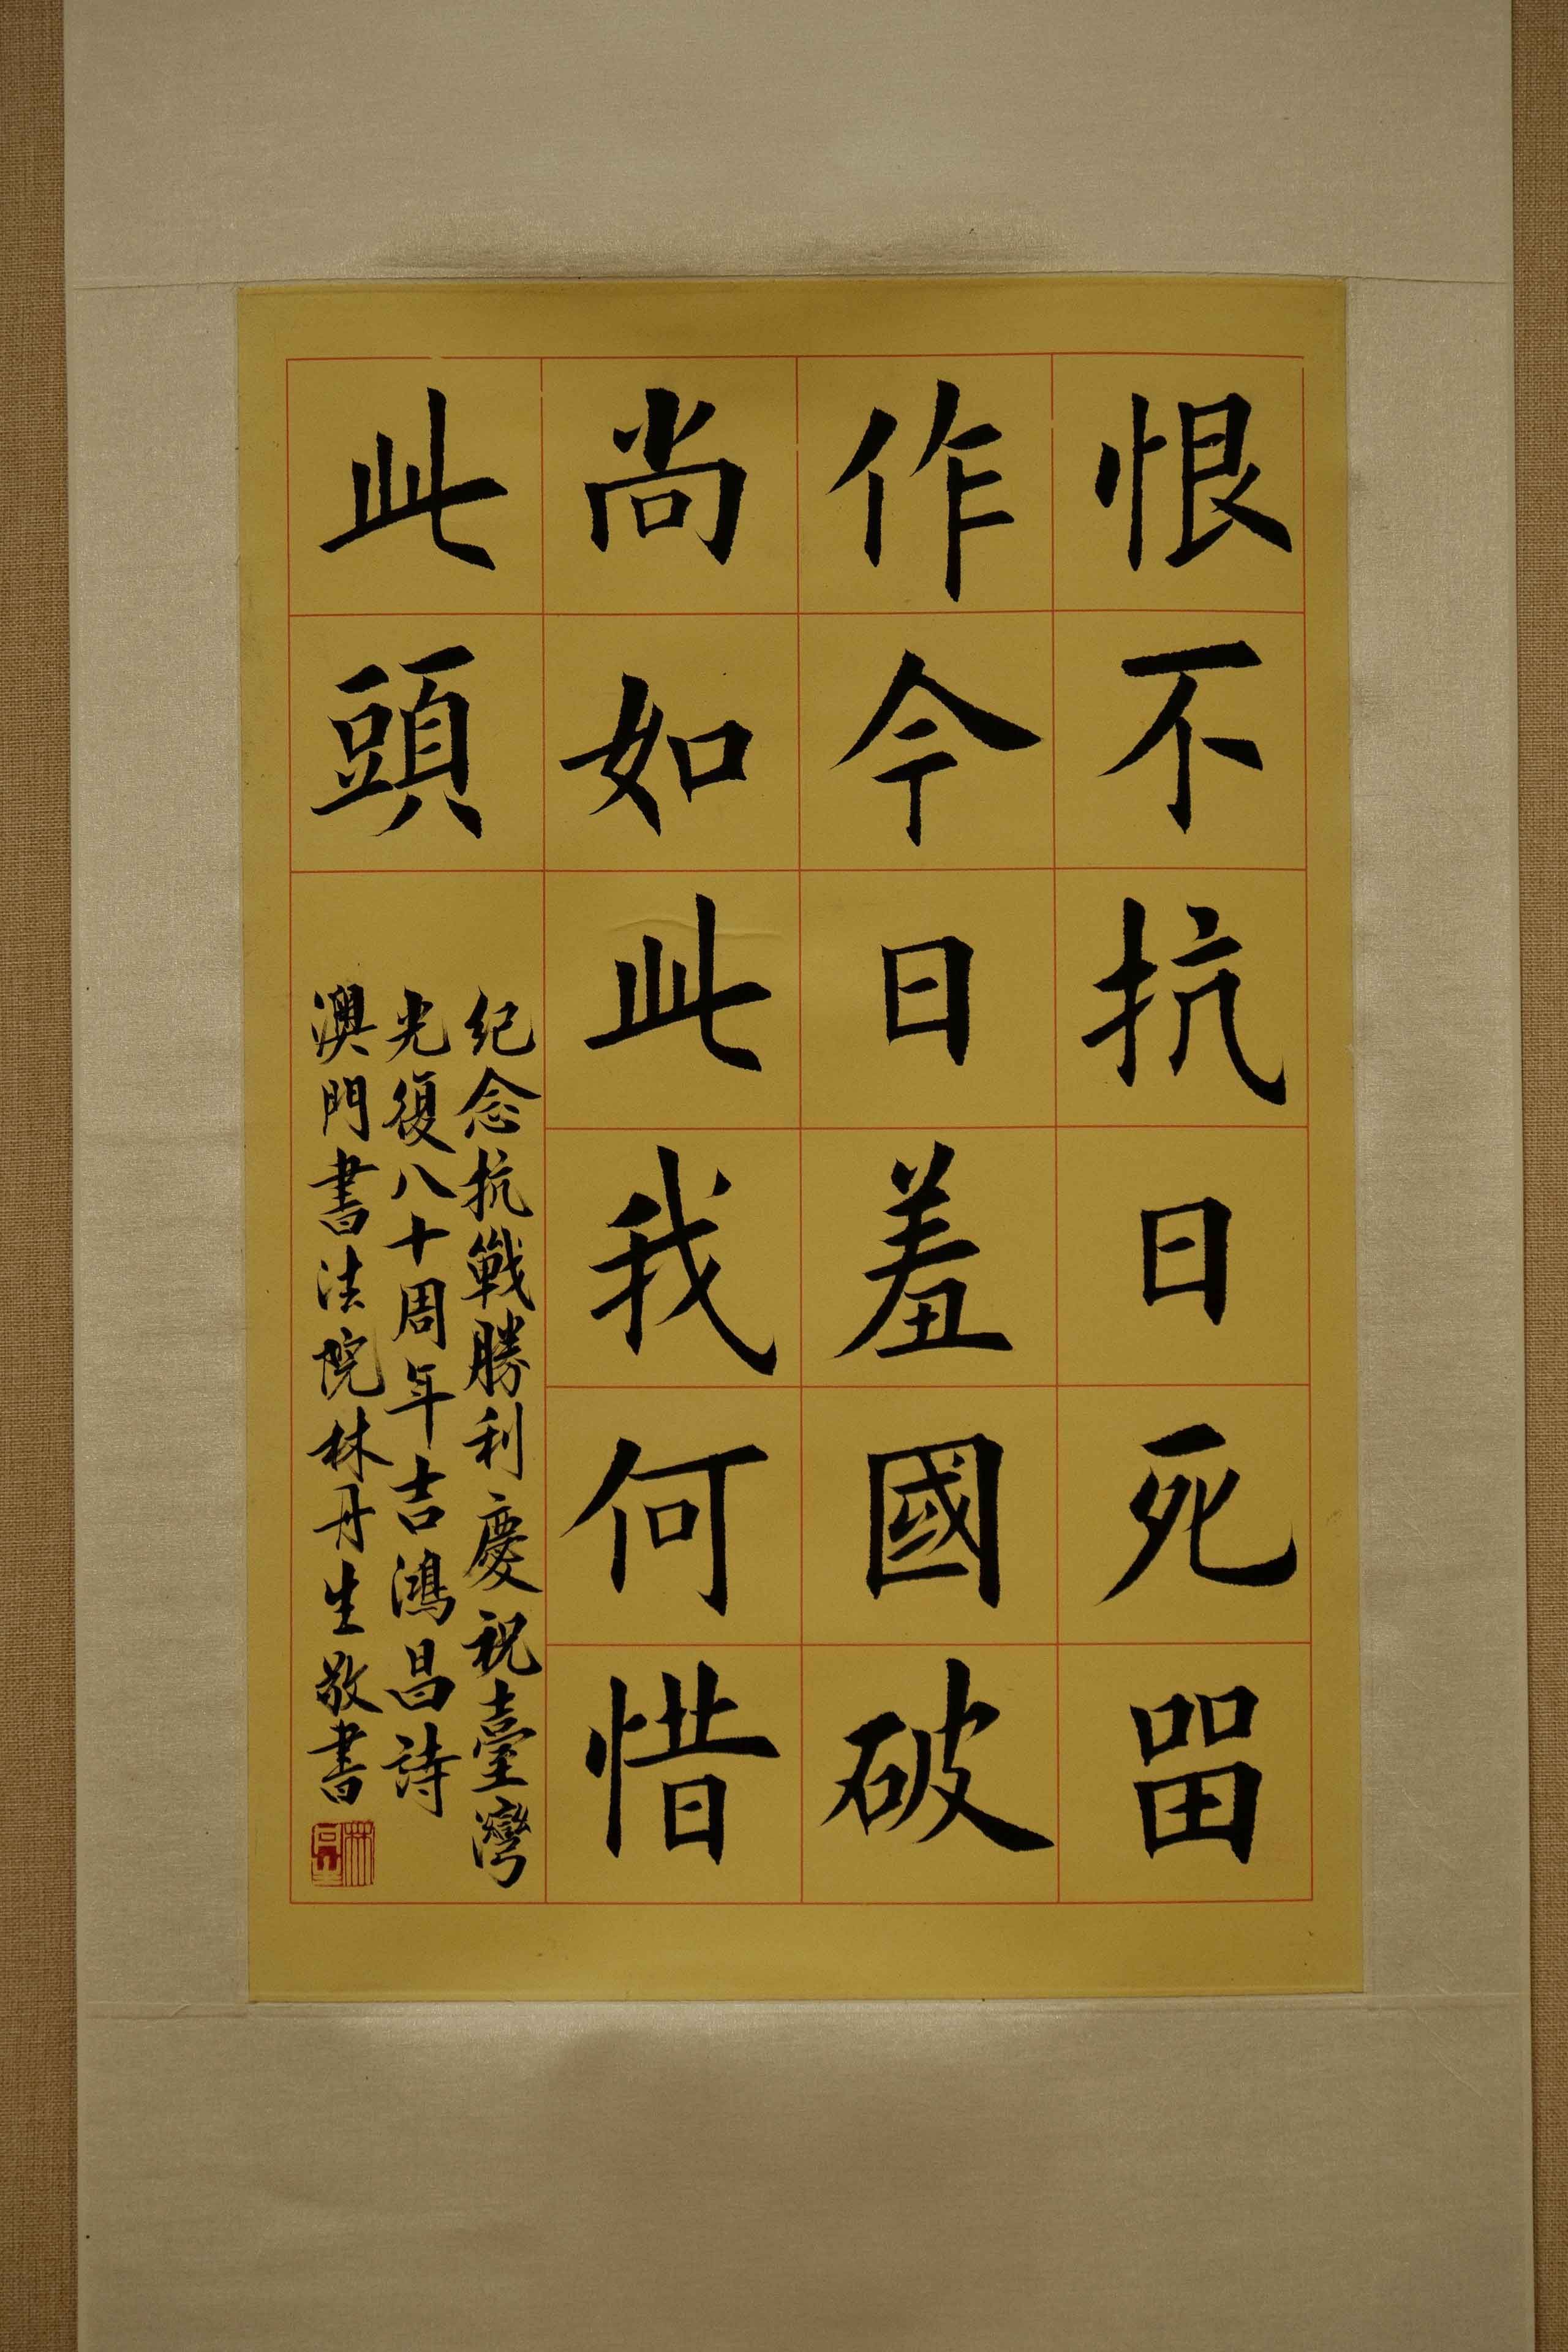 恨不抗日死畱
作今日羞國破
尚如此我何惜
此頭
纪念抗戰勝利慶祝臺灣
光復八十周年吉鴻昌詩
澳門書法院林丹生敬書